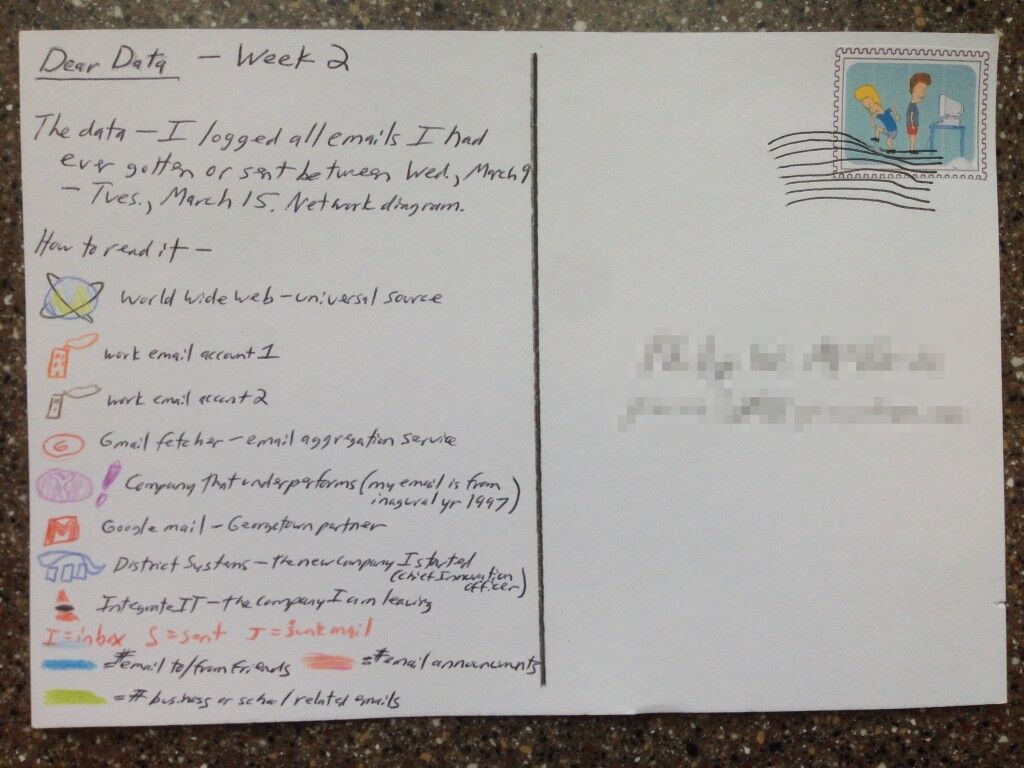 Dear Data - Week 2
The data - I logged all emails I had
ever gotten or sent between Wed, March 9
- Tues., March 15. Network diagram.
How to read it -
World Wide Web - universal source
work email account 1
work email account 2
G Gmail fetcher - email aggregation service
! Company that underperforms (my email is from
inagural yr 1997)
M Google mail - Georgetown partner
District Systems - the new company I started
(Chief Innovation
officer)
Integrate IT - the company I am leaving
I = inbox S = sent J = junk mail
= # email to/from friends = # email announcments
= # business or school related emails